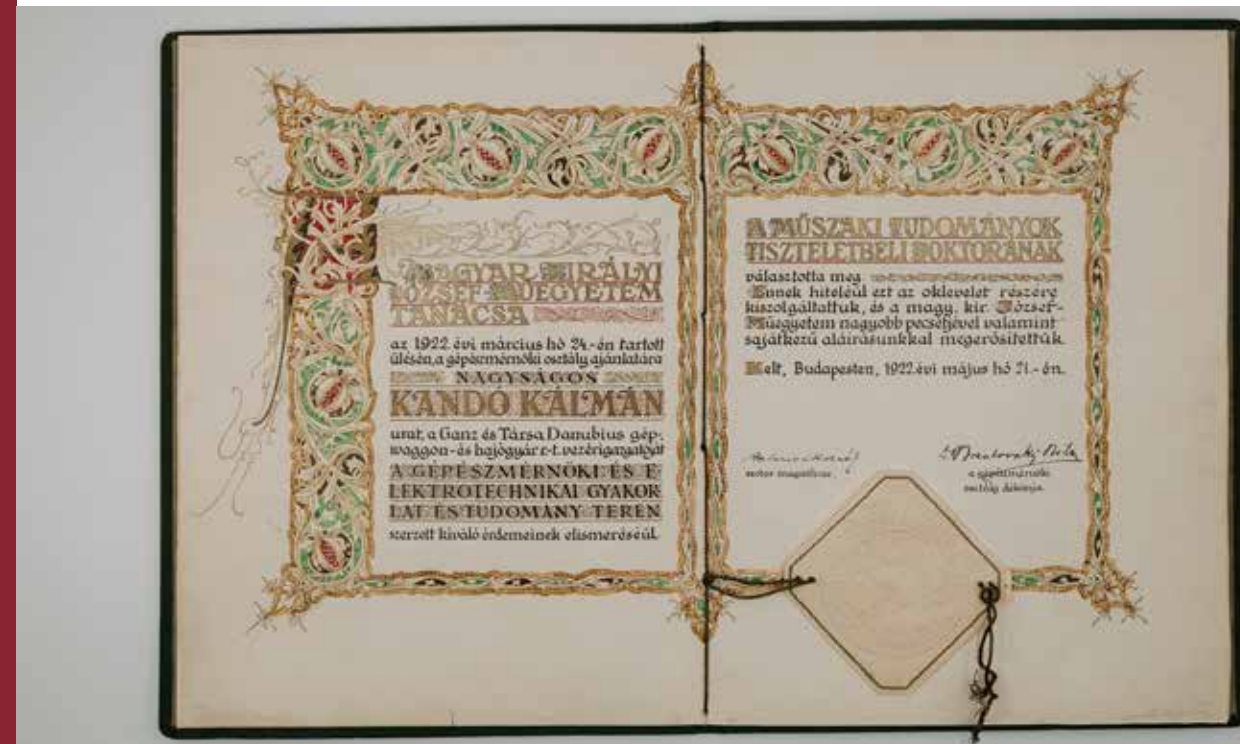 A MAGYAR KIRÁLYI
JÓZSEF MŰEGYETEM
TANÁCSA
az 1922. évi március hó 24.-én tartott
ülésén, a gépészmérnöki osztály ajánlatára
NAGYSÁGOS
KANDÓ KÁLMÁN
urat, a Ganz és Társa Danubius gép-,
waggon- és hajógyár r-t. vezérigazgatóját
A GÉPÉSZMÉRNÖKI ÉS E
LEKTROTECHNIKAI GYAKOR
LAT ÉS TUDOMÁNY TERÉN
szerzett kiváló érdemeinek elismeréséül
A MŰSZAKI TUDOMÁNYOK
TISZTELETBELI DOKTORÁNAK
választotta meg
Ennek hiteléül ezt az oklevelet részére
kiszolgáltattuk, és a magy. kir. József-
Műegyetem nagyobb pecsétjével valamint
sajátkezű aláírásunkkal megerősítettük.
Kelt, Budapesten, 1922. évi május hó 21.-én.
rector magnificus.
a gépészmérnöki
osztály dékánja.